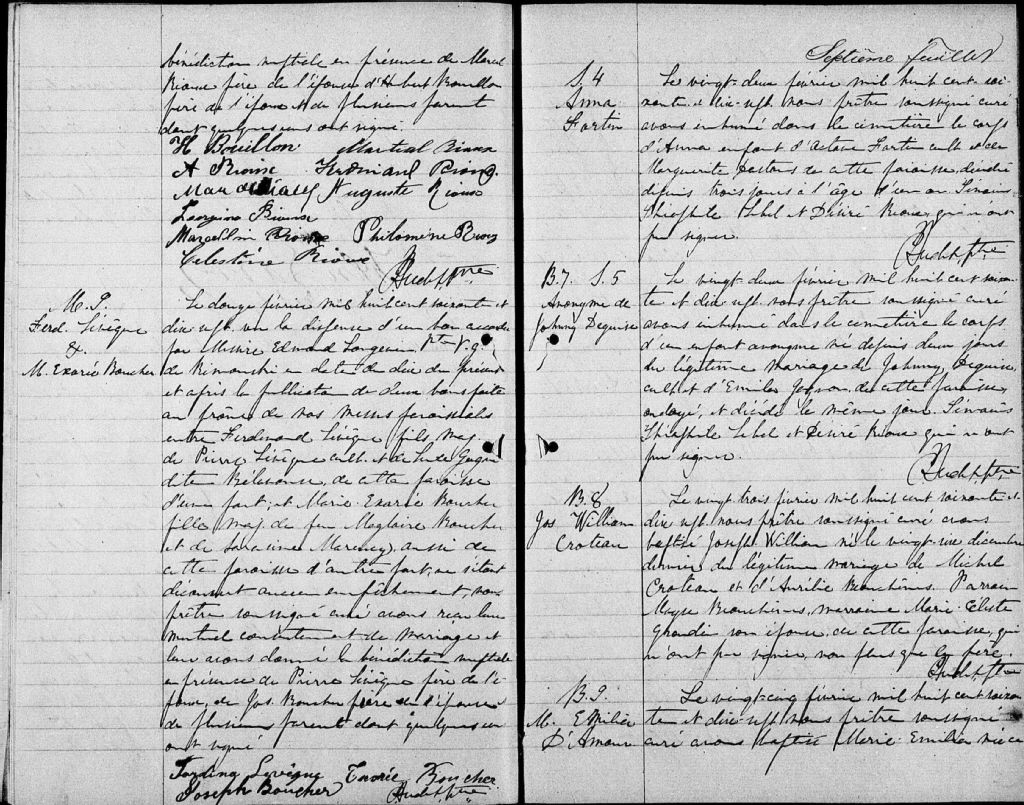 bénédiction nuptiale en présence de Marcel
Rioux père de l'épouse d'Hubert Rouillon
père de l'époux et de plusieurs parents
dont quelques uns ont signé.
H Bouillon Martial Rioux
A Rioux Ferdinand Rioux
Auguste Rioux
Georgina Rioux
Marcellin Rioux Philomène Rioux
Celestine Rioux
ptre
M. 7
Ferd. Lévêque
&
M. Exarié Boucher
Le douze février mil huit cent soixante et
dix sept vu la dispense d'un ban accordée
par Messire Edmond Langevin Ptre V. g.
de Rimouski en date du dix du présent
et après la publication de deux bans faite
au prône de nos messes paroissiales
entre Ferdinand Lévêque fils maj.
de Pierre Lévêque cult. et de Lude Gagnon
dite Bélavance, de cette paroisse
d'une part; et Marie Exarie Boucher
fille maj. de feu Magloire Boucher
et de Saraïnne Marency, aussi de
cette paroisse d'autre part, ne s'étant
découvert aucun empêchement, nous
prêtre soussigné curé avons reçu leur
mutuel consentement de mariage et
leur avons donné la bénédiction nuptiale
en présence de Pierre Lévêque père de l'é-
poux, de Jos. Boucher frère de l'épouse
de plusieurs parents dont quelques uns
ont signé
Lévêque Exarie Boucher
Joseph Boucher ptre
Septième feuillet
S. 4
Anna
Fortin
Le vingt-deux février mil huit cent soi-
xante et dix-sept nous prêtre soussigné curé
avons inhumé dans le cimetière le corps
d'Anna enfant d'Octave Fortin cult. et de
Marguerite de cette paroisse, décédée
depuis trois jours à l'âge d'un an. Témoins
Théophile Lebel et Désiré Rioux, qui n'ont
pu signer.
ptre
B. 7. S. 5
Anonyme de
Johnny Deguise
Le vingt-deux février mil huit cent soixan-
te et dix sept nous prêtre soussigné curé
avons inhumé dans le cimetière le corps
d'un enfant anonyme né depuis deux jours
du légitime mariage de Johnny Deguise,
cult. et d'Emilie de cette paroisse,
ondoyé, et décédé le même jour. Témoins
Théophile Lebel et Désiré Rioux qui n'ont
pu signer.
ptre
B. 8
Jos. William
Croteau
Le vingt trois février mil huit cent soixante et
dix sept nous prêtre soussigné curé avons
baptisé Joseph William né le vingt-six décembre
dernier du légitime mariage de Michel
Croteau et d'Aurélie Beauchênes. Parrain
Moyse Beauchênes, marraine Marie-Céleste
Grondin son épouse, de cette paroisse, qui
n'ont pu signer, non plus que le père.
ptre
B. 9
M. Emilie
D'Amour
Le vingt-cinq février mil huit cent soixan-
te et dix-sept nous prêtre soussigné
curé avons baptisé Marie Emilie née ce